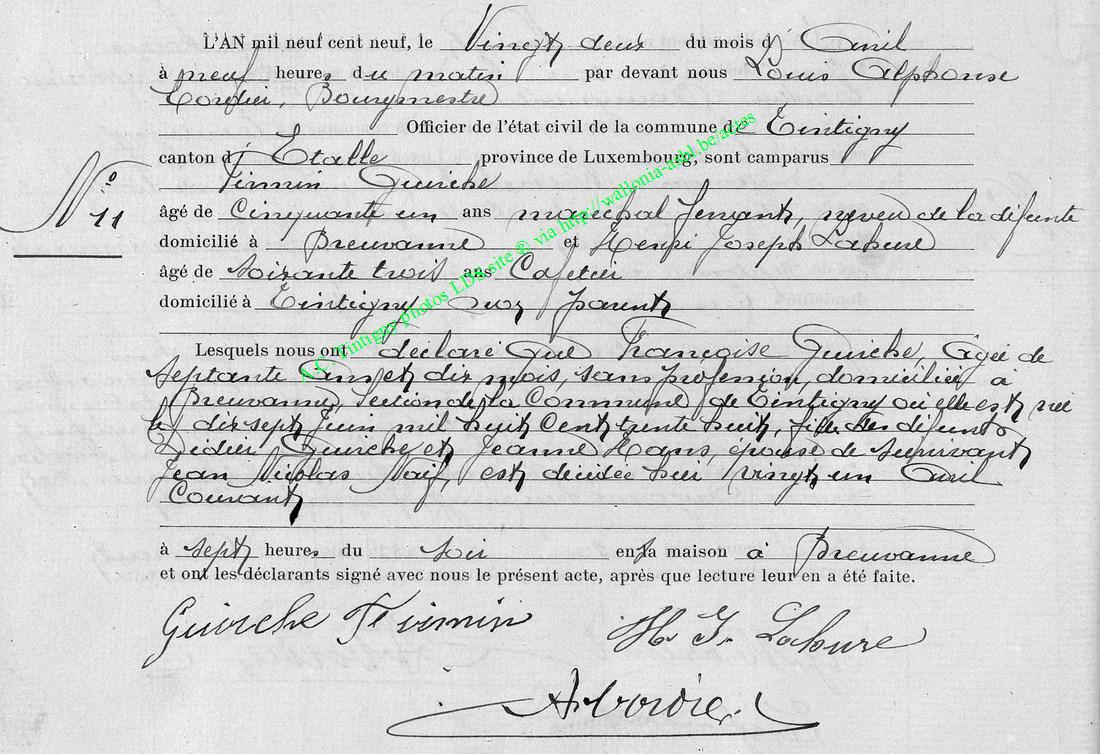 L'AN mil neuf cent neuf, le Vingt deux du mois d' Avril
à neuf heures du matin par devant nous Louis Alphonse
Cordier, Bourgmestre
Officier de l'état civil de la commune de Tintigny
canton d' Etalle province de Luxembourg, sont comparus
Firmin Guirche
No 11
âgé de Cinquante un ans maréchal ferrant, neveu de la défunte
domicilié à Breuvanne et Henri Joseph Lahure
âgé de soixante trois ans Cafetier
domicilié à Tintigny non parent
Lesquels nous ont déclaré que Françoise Guirche, âgée de
septante ans et dix mois, sans profession, domiciliée à
Breuvanne, section de la Commune de Tintigny où elle est née
le dix sept Juin mil huit cent trente huit, fille des défunts
Didier Guirche et Jeanne Hans, épouse de survivant
Jean Nicolas Naif, est décédée hier vingt un Avril
Courant
à sept heures du soir en sa maison à Breuvanne
et ont les déclarants signé avec nous le présent acte, après que lecture leur en a été faite.
Guirche Firmin H. J. Lahure
A. Cordier
A.C. Tintigny photos LDs site ® via http://wallonia-asbl.be/actes